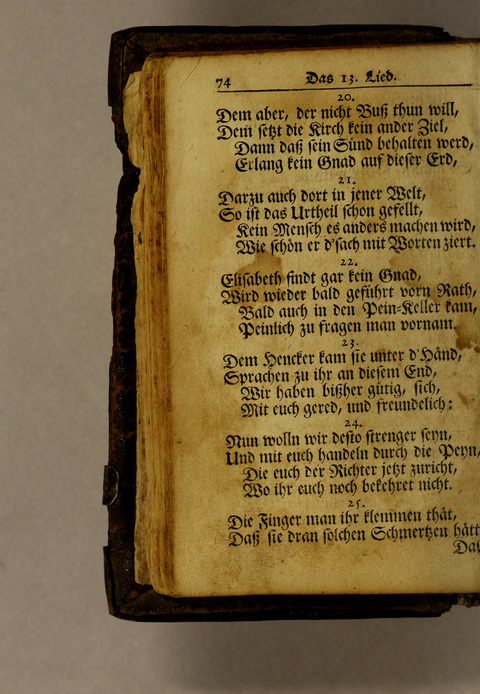 74 Das 13. Lied.
20.
Dem aber, der nicht Buß thun will,
Dem setzt die Kirch kein ander Ziel,
Dann daß sein Sünd behalten werd,
Erlang kein Gnad auf dieser Erd,
21.
Darzu auch dort in jener Welt,
So ist das Urtheil schon gefellt,
Kein Mensch es anders machen wird,
Wie schön er d'sach mit Worten ziert.
22.
Elisabeth findt gar kein Gnad,
Wird wieder bald geführt vorn Rath,
Bald auch in den Pein-Keller kam,
Peinlich zu fragen man vornam.
23.
Dem Hencker kam sie unter d'Händ,
Sprachen zu ihr an diesem End,
Wir haben bißher gütig, sich,
Mit euch gered, und freundelich:
24.
Nun wolln wir desto strenger seyn,
Und mit euch handeln durch die Peyn,
Die euch der Richter jetzt zuricht,
Wo ihr euch noch bekehret nicht.
25.
Die Finger man ihr klemmen thät,
Daß sie dran solchen Schmertzen hätt